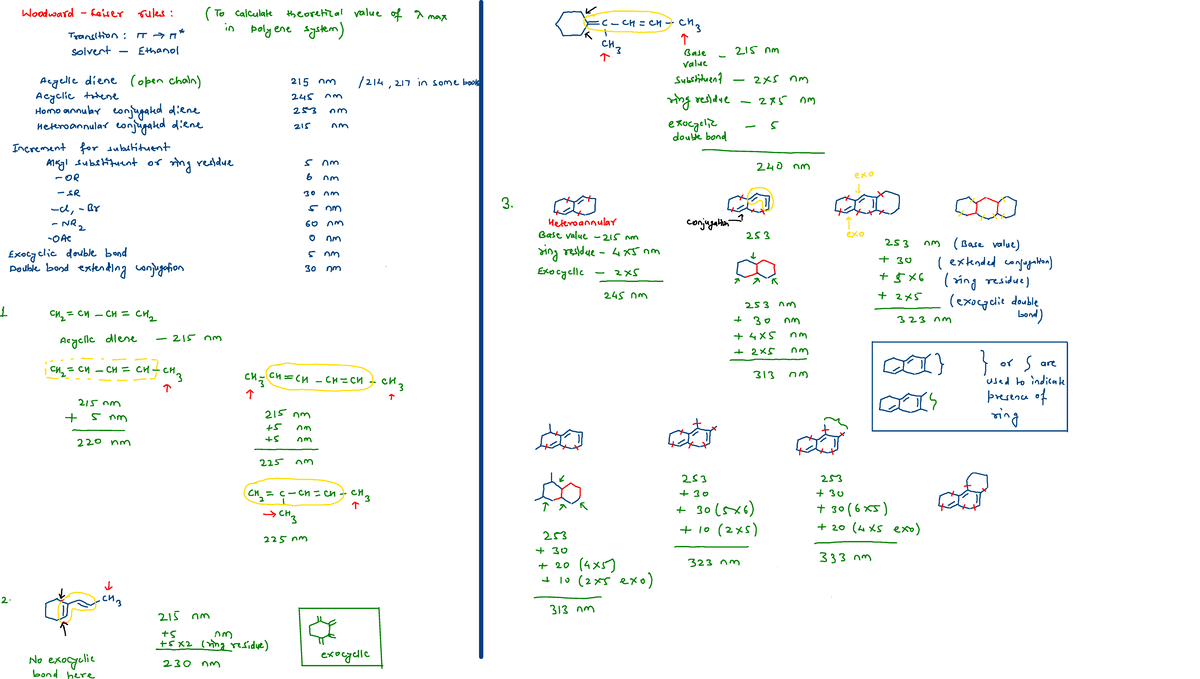 Woodward-Feiser rules: (To calculate theoretical value of λ max
in polyene system)
Transition: π → π*
Solvent — Ethanol
Acyclic diene (open chain) 215 nm /214, 217 in some books
Acyclic triene 245 nm
Homoannular conjugated diene 253 nm
Heteroannular conjugated diene 215 nm
Increment for substituent
Alkyl substituent or ring residue 5 nm
-OR 6 nm
-SR 30 nm
-Cl, -Br 5 nm
-NR2 60 nm
-OAc 0 nm
Exocyclic double bond 5 nm
Double bond extending conjugation 30 nm
1
CH2 = CH - CH = CH2
Acyclic diene — 215 nm
CH2 = CH - CH = CH - CH3
215 nm
+ 5 nm
220 nm
CH3 - CH = CH - CH = CH - CH3
215 nm
+5 nm
+5 nm
225 nm
CH2 = C - CH = CH - CH3
CH3
225 nm
2.
CH3
No exocyclic
bond here
215 nm
+5 nm
+5x2 (ring residue)
230 nm
exocyclic
= C - CH = CH - CH3
CH3
Base value — 215 nm
substituent — 2x5 nm
ring residue — 2x5 nm
exocyclic double bond — 5
240 nm
3.
Heteroannular
Base value - 215 nm
ring residue - 4x5 nm
Exocyclic — 2x5
245 nm
conjugation
253
253 nm
+ 30 nm
+ 4x5 nm
+ 2x5 nm
313 nm
exo
exo
253 nm (Base value)
+ 30 (extended conjugation)
+ 5x6 (ring residue)
+ 2x5 (exocyclic double bond)
323 nm
} or ⟆ are
used to indicate
presence of
ring
253
+ 30
+ 20 (4x5)
+ 10 (2x5 exo)
313 nm
253
+30
+ 30 (5x6)
+ 10 (2x5)
323 nm
253
+30
+ 30 (6x5)
+ 20 (4x5 exo)
333 nm